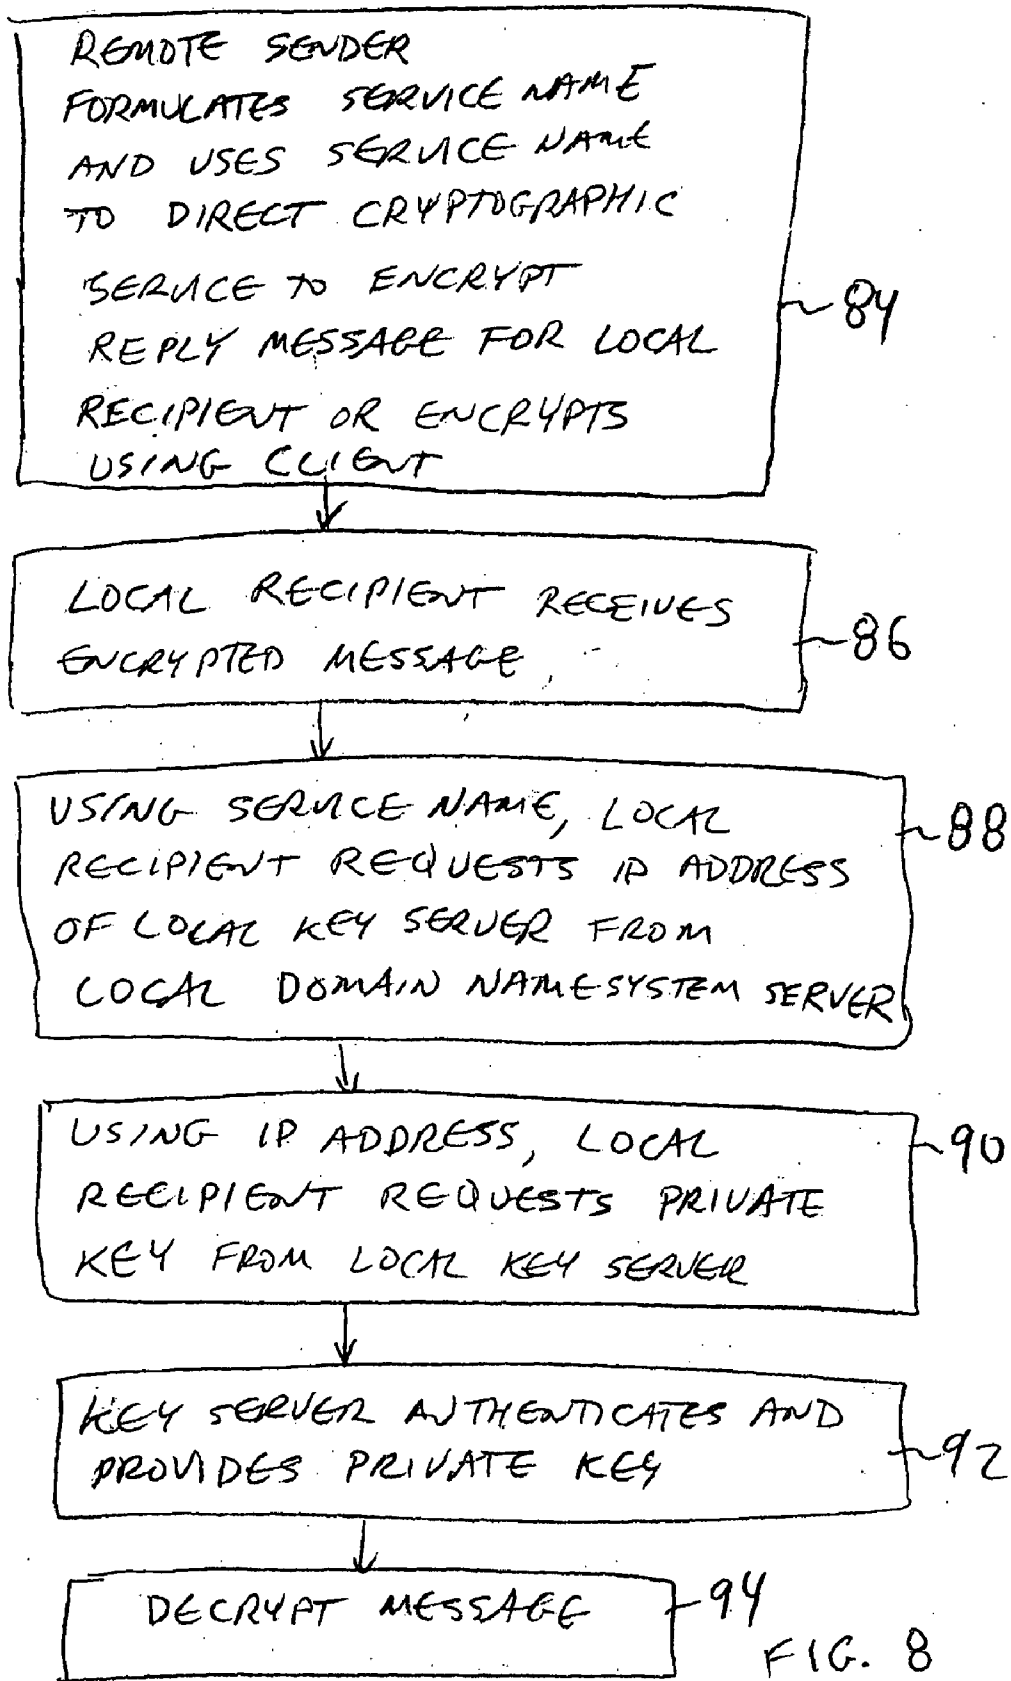 REMOTE SENDER
FORMULATES SERVICE NAME
AND USES SERVICE NAME
TO DIRECT CRYPTOGRAPHIC
SERVICE TO ENCRYPT
REPLY MESSAGE FOR LOCAL
RECIPIENT OR ENCRYPTS
USING CLIENT
84
LOCAL RECIPIENT RECEIVES
ENCRYPTED MESSAGE
86
USING SERVICE NAME, LOCAL
RECIPIENT REQUESTS IP ADDRESS
OF LOCAL KEY SERVER FROM
LOCAL DOMAIN NAME SYSTEM SERVER
88
USING IP ADDRESS, LOCAL
RECIPIENT REQUESTS PRIVATE
KEY FROM LOCAL KEY SERVER
90
KEY SERVER AUTHENTICATES AND
PROVIDES PRIVATE KEY
92
DECRYPT MESSAGE
94
FIG. 8